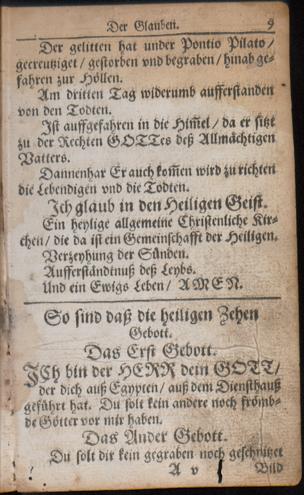 Der Glauben. 9
Der gelitten hat under Pontio Pilato /
gecreutziget / gestorben vnd begraben / hinab ge-
fahren zur Höllen.
Am dritten Tag widerumb aufferstanden
von den Todten.
Ist auffgefahren in die Him̃el / da er sitzt
zu der Rechten GOTTes deß Allmächtigen
Vatters.
Dannenhar Er auch kom̃en wird zu richten
die Lebendigen vnd die Todten.
Ich glaub in den Heiligen Geist.
Ein heylige allgemeine Christenliche Kir-
chen / die da ist ein Gemeinschafft der Heiligen.
Verzeyhung der Sünden.
Aufferständtnuß deß Leybs.
Und ein Ewigs Leben / AMEN.
So sind daß die heiligen Zehen
Gebott.
Das Erst Gebott.
ICh bin der HERR dein GOTT /
der dich auß Egypten / auß dem Diensthauß
geführt hat. Du solt kein andere noch frömb-
de Götter vor mir haben.
Das Ander Gebott.
Du solt dir kein gegraben noch geschnitzet
A v Bild